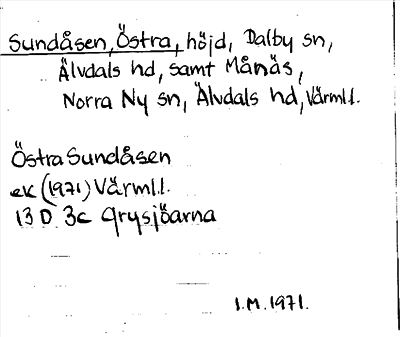 Sundåsen, Östra, höjd, Dalby sn,
Älvdals hd, samt Månäs,
Norra Ny sn, Älvdals hd, Värml.
Östra Sundåsen
ek (1971) Värml.
13 D 3c Grysjöarna
I.M. 1971.